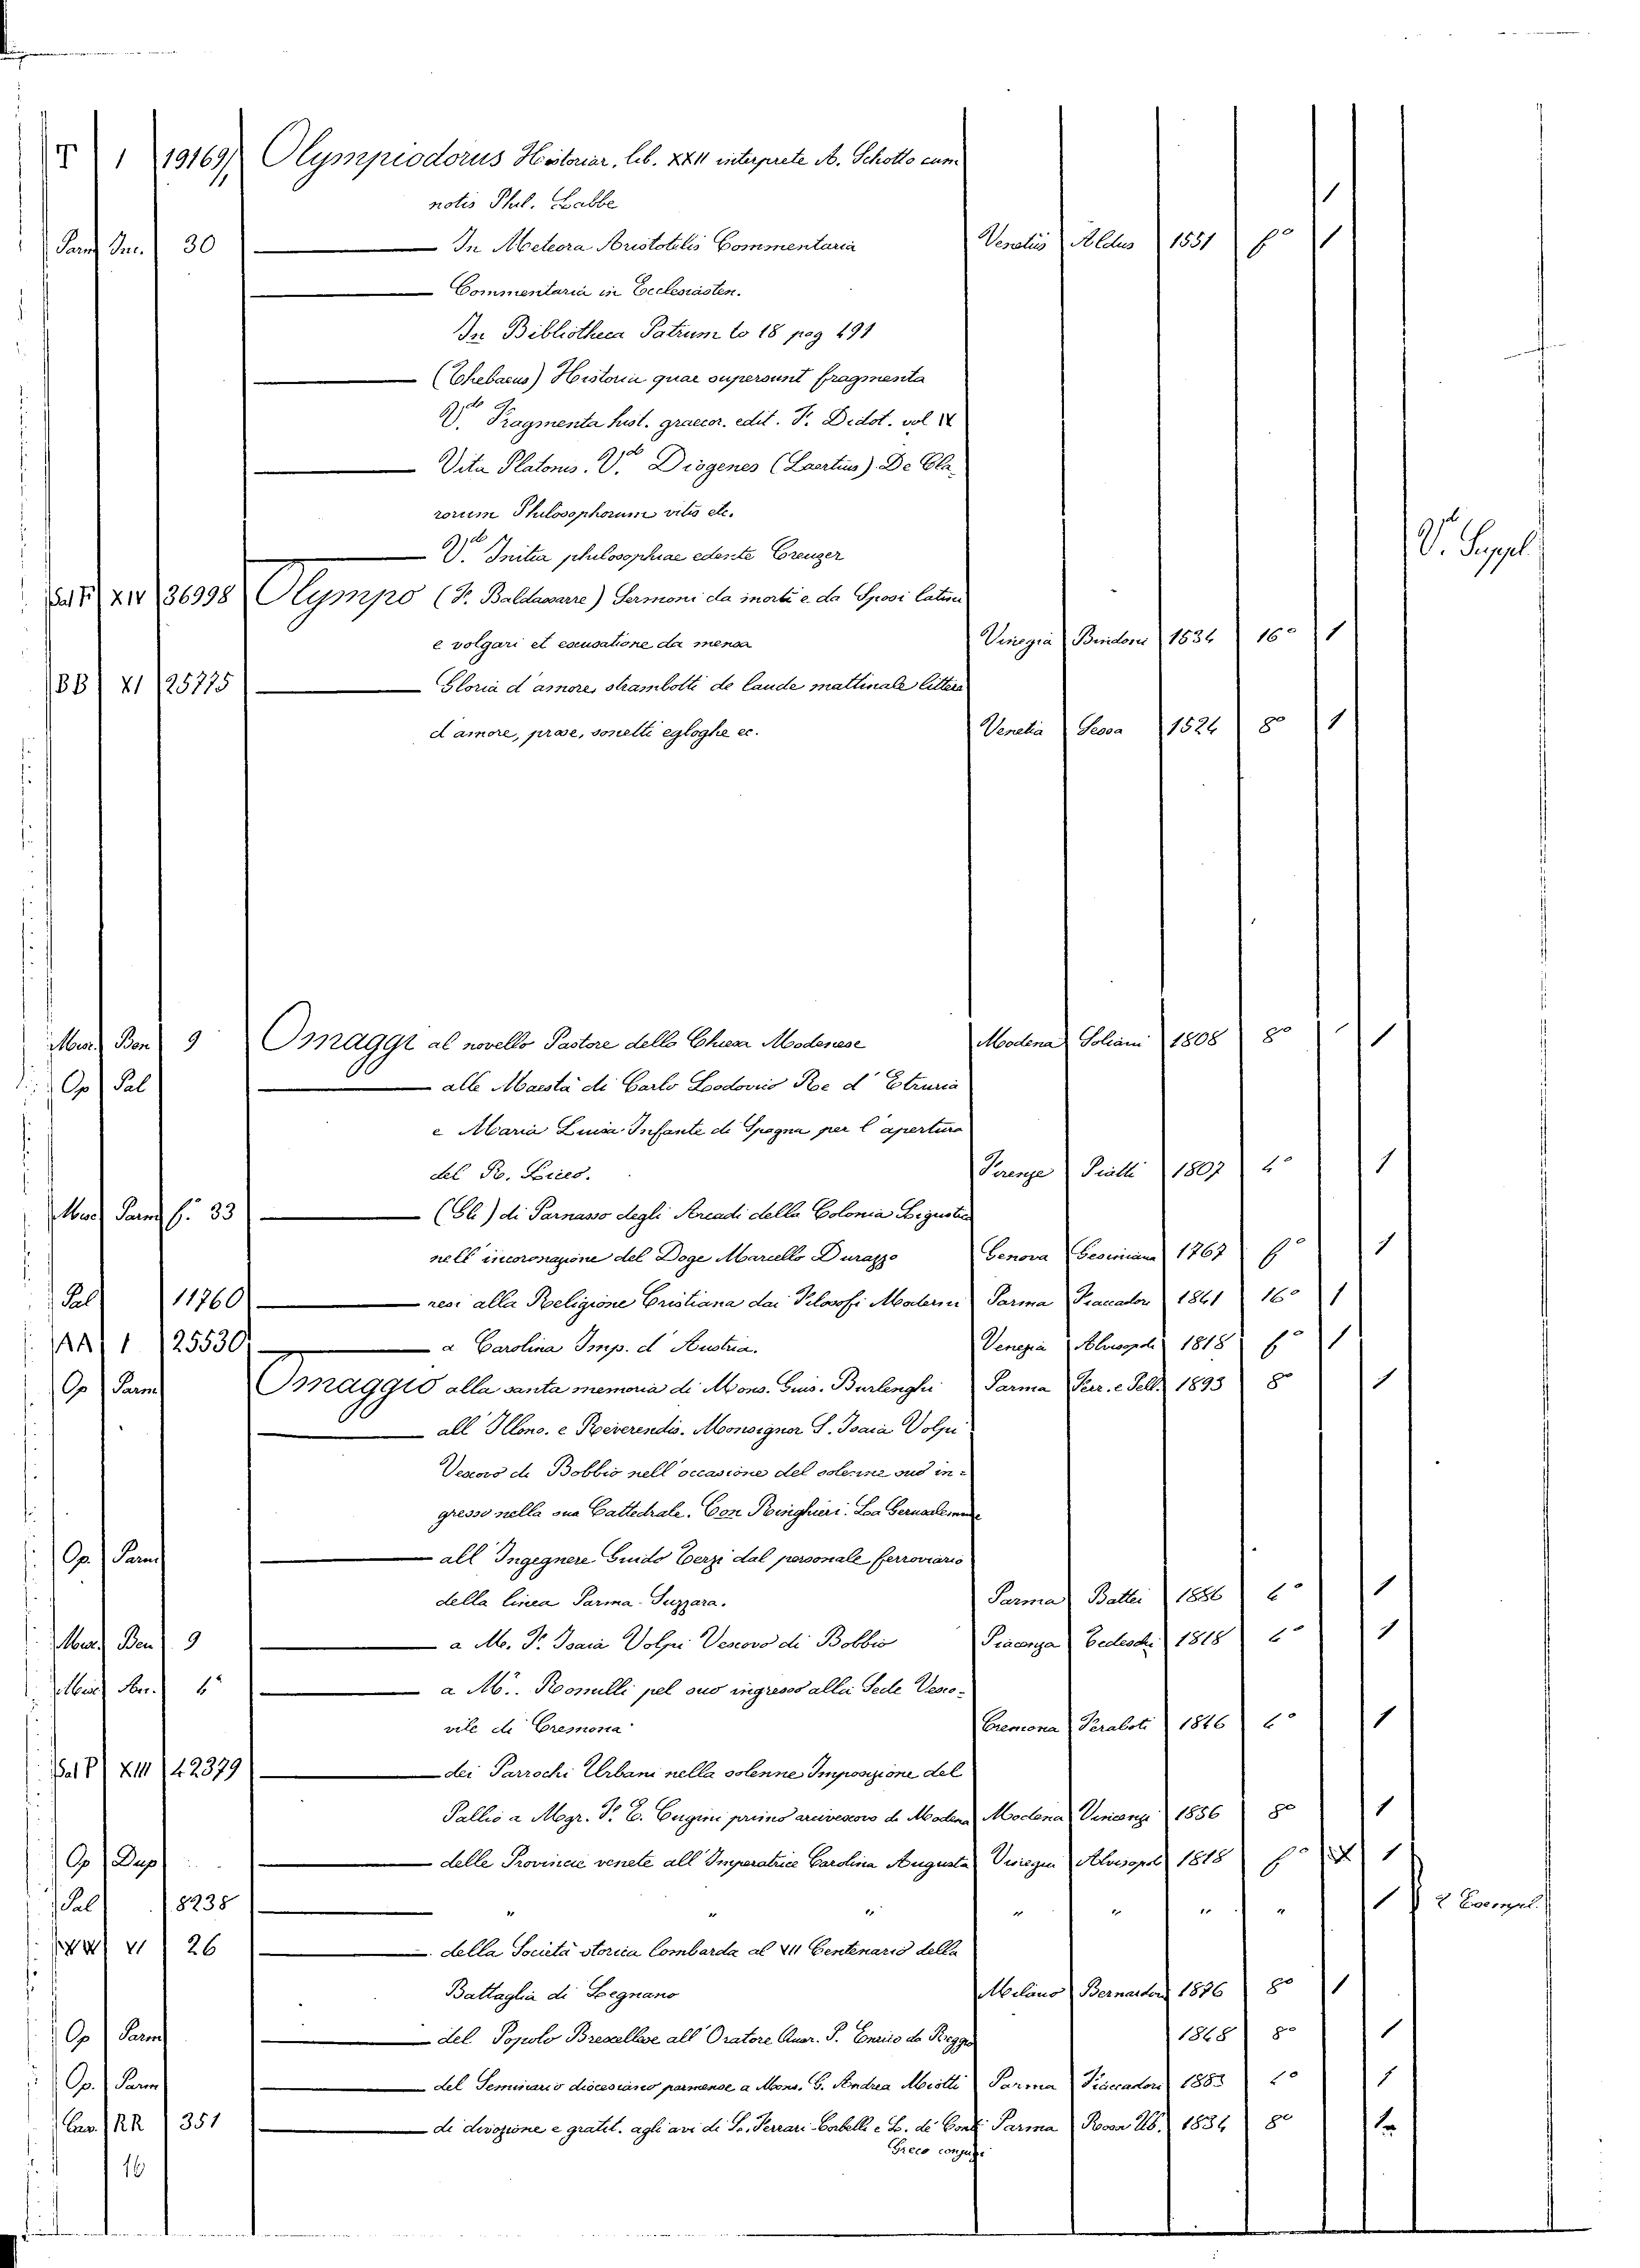 T 1 19169 Olympiodorus Historiar. lib. XXII interprete A. Schotto cum
notis Phil. Labbe 1
Parm Inc. 30 In Meteora Aristotelis Commentaria Venetiis Aldus 1551 fo 1
Commentaria in Ecclesiasten.
In Bibliotheca Patrum to 18 pag 491
(Thebaeus) Historia quae supersunt fragmenta
V.de Fragmenta hist. graecor. edit. F. Didot. vol IV
Vita Platonis. V.de Diogenes (Laertius) De Cla-
rorum Philosophorum vitis etc.
V.de Initia philosophiae edente Creuzer V. Suppl.
Sal F XIV 36998 Olympo (F. Baldassarre) Sermoni da morti e da Sposi latini
e volgari et escusatione da mensa Vinegia Bindoni 1534 16o 1
BB XI 25775 Gloria d'amore, strambotti de laude mattinale littera
d'amore, prose, sonetti egloghe ec. Venetia Sessa 1524 8o 1
Misc. Ben 9 Omaggi al novello Pastore della Chiesa Modenese Modena Soliani 1808 8o 1
Op Pal alle Maestà di Carlo Lodovico Re d'Etruria
e Maria Luisa Infante di Spagna per l'apertura
del R. Liceo. Firenze Piatti 1807 4o 1
Misc Parm f.o 33 (Gli) di Parnasso degli Arcadi della Colonia Ligustica
nell'incoronazione del Doge Marcello Durazzo Genova Gesiniana 1767 fo 1
Pal 11760 resi alla Religione Cristiana dai Filosofi Moderni Parma Fiaccadori 1841 16o 1
AA 1 25530 a Carolina Imp. d'Austria. Venezia Alvisopoli 1818 fo 1
Op Parm Omaggio alla santa memoria di Mons. Giis. Burlenghi Parma Ferr. e Pell. 1893 8o 1
all'Illmo. e Reverendis. Monsignor S. Isaia Volpi
Vescovo di Bobbio nell'occasione del solenne suo in-
gresso nella sua Cattedrale. Con Ringhieri. La Gerusalemme
Op. Parm all'Ingegnere Guido Terzi dal personale ferroviario
della linea Parma-Suzzara. Parma Battei 1886 4o 1
Misc Ben 9 a M. F. Isaia Volpi Vescovo di Bobbio Piacenza Tedeschi 1818 4o 1
Misc 4o a M.r. Romilli pel suo ingresso alla Sede Vesco-
vile di Cremona Cremona Feraboli 1846 4o 1
Sal P XIII 42379 dei Parrochi Urbani nella solenne Imposizione del
Pallio a Mgr. F. E. Cugini primo arcivescovo di Modena Modena Vincenzi 1856 8o 1
Op Dup delle Provincie venete all'Imperatrice Carolina Augusta Vinegia Alvisopoli 1818 fo 1
Pal 8238 " " " " " " " 1 2 Esempl.
VI 26 della Società storica lombarda al VII Centenario della
Battaglia di Legnano Milano Bernardoni 1876 8o 1
Op Parm del Popolo Brescellese all'Oratore Quar. P. Enrico da Reggio 1848 8o 1
Op. Parm del Seminario diocesano parmense a Mons. G. Andrea Miotti Parma Fiaccadori 1883 4o 1
Cas. RR 351 di divozione e gratit. agli avi di L. Ferrari-Corbelli e L. de' Conti Parma Rossi Ub. 1834 8o 1
Greco conjugi
16